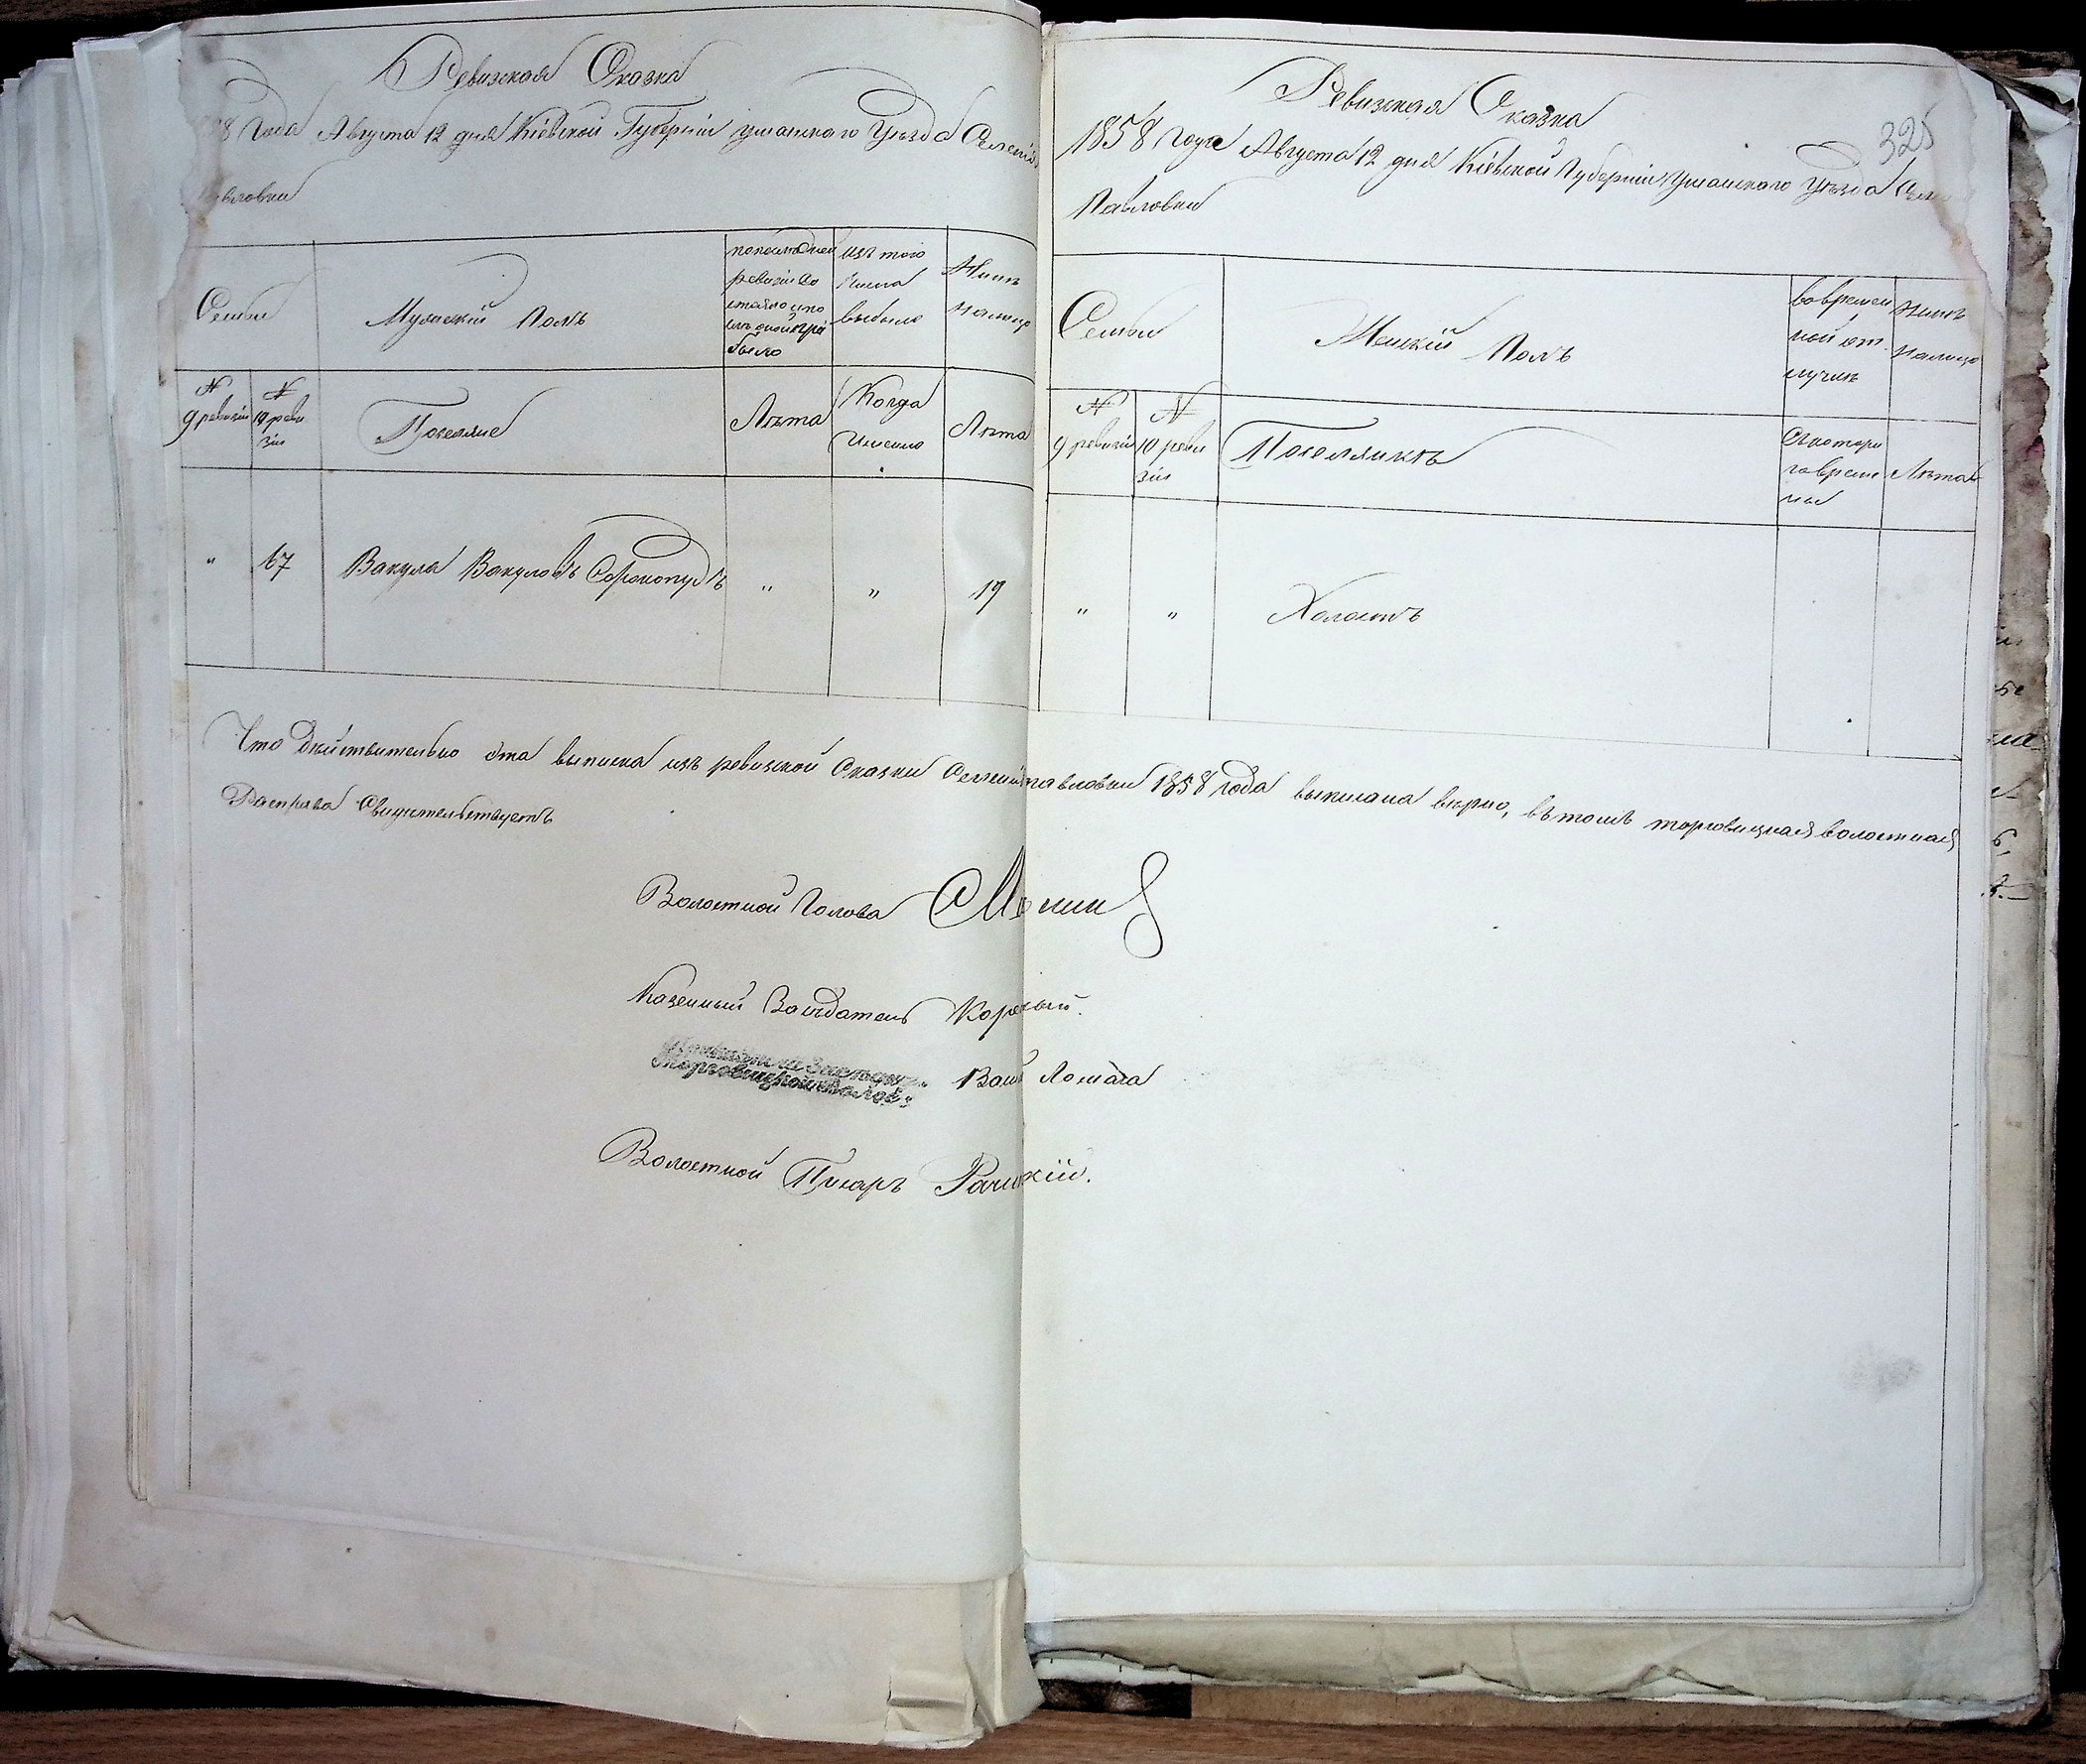 Ревизская Сказка
8 Года Августа 12 дня Кіевской Губерніи уманскаго Уѣзда Селенія
Павловки
Семьи
Мужескій Полъ
По последней ревизіи состояло и после оной прибыло
Изъ того числа выбыло
Нынѣ на лицо
№ 9 ревизіи
№ 10 ревизіи
Поселяне
Лѣта
Когда Именно
Лѣта
" 67 Вакула Вакуловъ Сорокопудъ " " 19
Ревизская Сказка
325
1858 Года Августа 12 дня Кіевской Губерніи Уманского Уѣзда Селе
Павловки
Семьи
Женскій Полъ
Во временной отлучкѣ
Нынѣ на лицо
№ 9 ревизіи
№ 10 ревизіи
Поселянкѣ
Скотораго времени
Лѣта
" " Холостъ
Что действительно эта выписка изъ ревизской Сказки Селенія павловки 1858 года выписана вѣрно, въ томъ торговицкая волостная
Расправа Свидетельствуетъ
Волостной Голова
Казенный Заседатель
Волостной Писарь